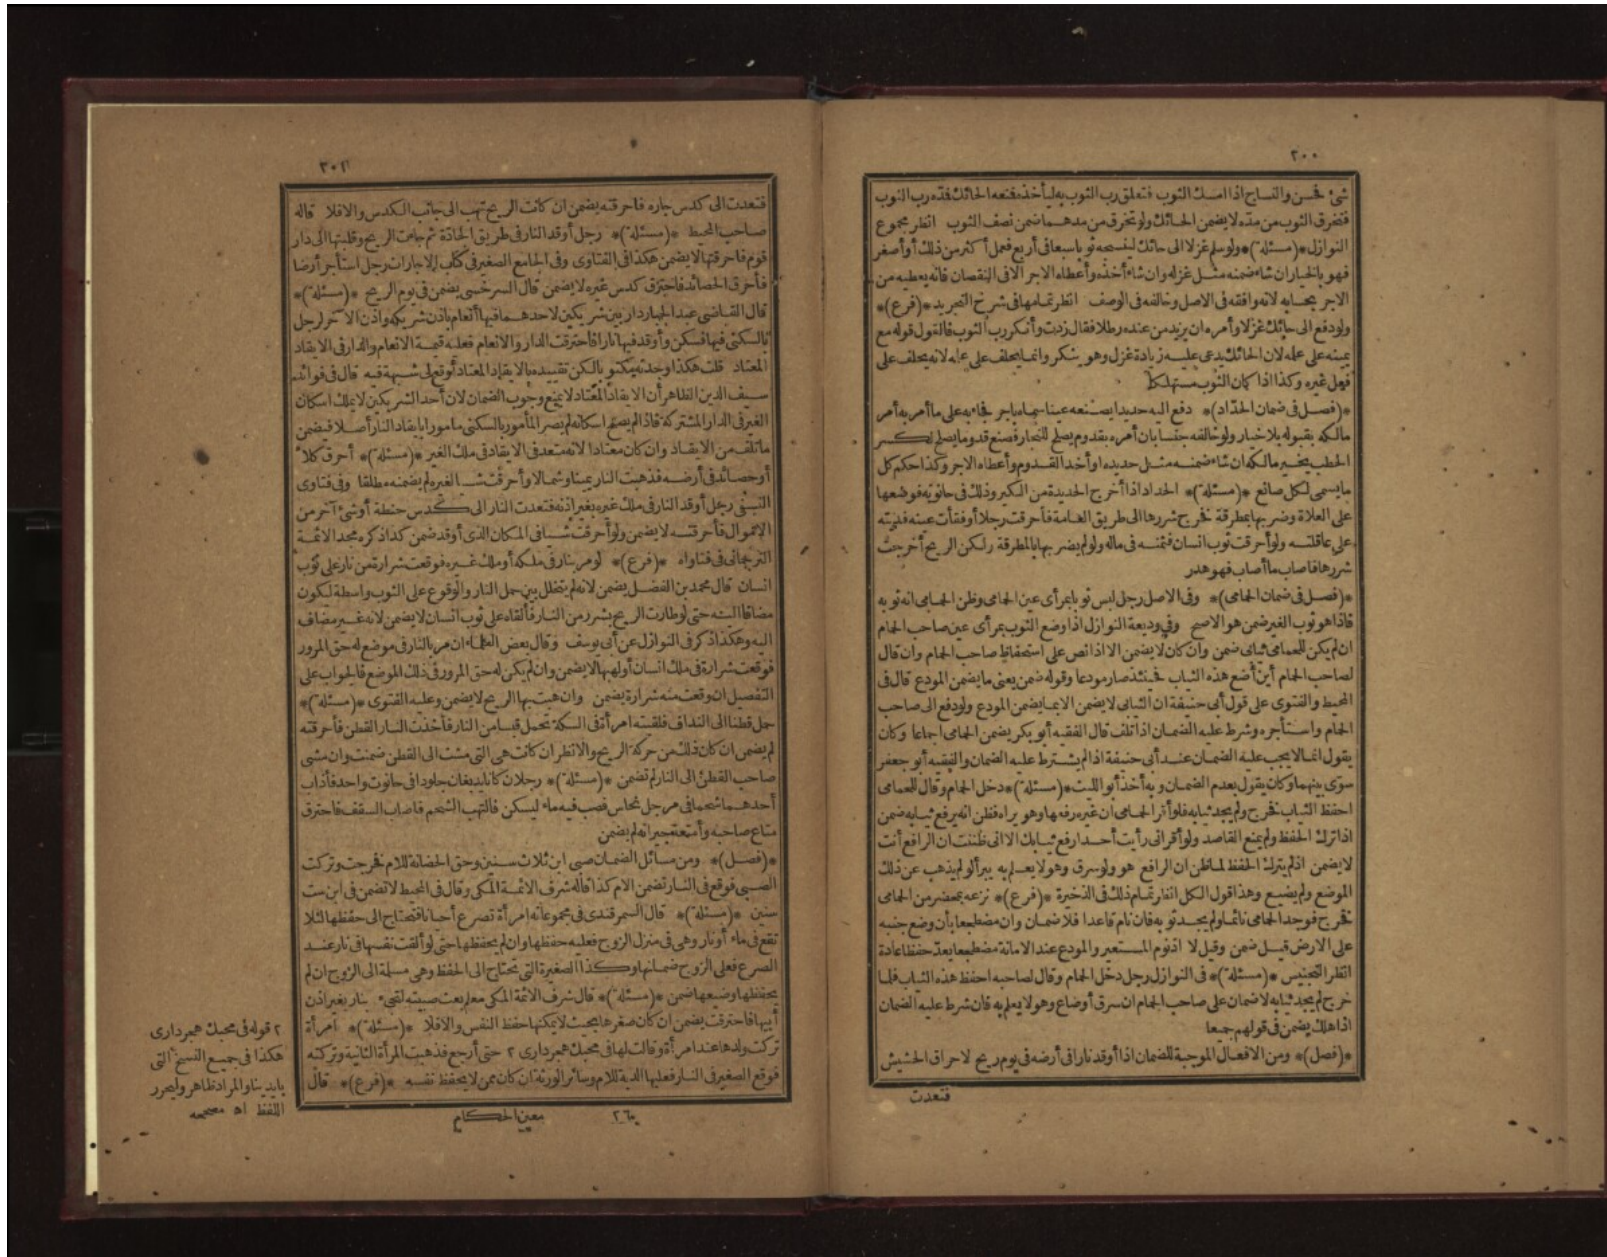 ٢٠٠
شئ فحسن والنساج اذا امسك الثوب فتعلق رب الثوب به ليأخذه فنعه الحائك فدّه رب الثوب
فتخرق الثوب من مدّه لا يضمن الحائك ولو تخرق من مدهما ضمن نصف الثوب انظر مجموع
النوازل *(مسئلة)* ولو سلم غزلا الى حائك لينسجه ثوبا سبعا فى أربع فعمل أكثر من ذلك أو أصغر
فهو بالخيار ان شاء ضمنه مثل غزله وان شاء أخذه وأعطاه الاجر الا فى النقصان فانه يعطيه من
الاجر بحسابه لانه وافقه فى الاصل وخالفه فى الوصف انظر تمامها فى شرح التجريد *(فرع)*
ولو دفع الى حائك غزلا وأمره ان يزيد من عنده رطلا فقال زدت وأنكر رب الثوب فالقول قوله مع
يمينه على عمله لان الحائك يدعى عليه زيادة غزل وهو ينكر وانما يحلف على علمه لانه يحلف على
فعل غيره وكذا اذا كان الثوب مستهلكا
*(فصل فى ضمان الحدّاد)* دفع اليه حديدا يصنعه عينا سماه باجر فجاء به على ما أمر به أمر
مالكه بقبوله بلا خيار ولو خالفه جنسا بان أمره بقدوم يصلح للنجار فصنع قدوما يصلح لكسر
الحطب يخير مالكه ان شاء ضمنه مثل حديده أو أخذ القدوم وأعطاه الاجر وكذا حكم كل
ما يسمى لكل صانع *(مسئلة)* الحداد اذا أخرج الحديدة من الكير وذلك فى حانوته فوضعها
على العلاة وضربها بمطرقة فخرج شررها الى طريق العامة فأحرقت رجلا أو فقأت عينه فديته
على عاقلته ولو أحرقت ثوب انسان فثمنه فى ماله ولو لم يضربها بالمطرقة ولكن الريح أخرجت
شررها فاصاب ما أصاب فهو هدر
*(فصل فى ضمان الحمامى)* وفى الاصل رجل لبس ثوبا بمرأى عين الحمامى وظن الحمامى انه ثوبه
فاذا هو ثوب الغير ضمن هو الاصح وفى وديعة النوازل اذا وضع الثوب بمرأى عين صاحب الحمام
ان لم يكن للحمامى ثيابى ضمن وان كان لا يضمن الا اذا نص على استحفاظ صاحب الحمام وان قال
لصاحب الحمام أين أضع هذه الثياب فحينئذ صار مودعا وقوله ضمن يعنى ما يضمن المودع قال فى
المحيط والفتوى على قول أبى حنيفة ان الثيابى لا يضمن الا بما يضمن المودع ولو دفع الى صاحب
الحمام واستأجره وشرط عليه الضمان اذا تلف قال الفقيه أبو بكر يضمن الحمامى اجماعا وكان
يقول انما لا يجب عليه الضمان عند أبى حنيفة اذا لم يشترط عليه الضمان والفقيه أبو جعفر
سوّى بينهما وكان يقول بعدم الضمان وبه أخذ أبو الليث *(مسئلة)* دخل الحمام وقال للحمامى
احفظ الثياب فخرج ولم يجد ثيابه فلو أقر الحمامى ان غيره رفعها وهو يراه فظن انه يرفع ثيابه ضمن
اذا ترك الحفظ ولم يمنع القاصد ولو أقر انى رأيت أحدا رفع ثيابك الا انى ظننت ان الرافع أنت
لا يضمن اذ لم يترك الحفظ لما ظن ان الرافع هو ولو سرق وهو لا يعلم به يبرأ لو لم يذهب عن ذلك
الموضع ولم يضيع وهذا قول الكل انظر تمام ذلك فى الذخيرة *(فرع)* نزعه بمحضر من الحمامى
فخرج فوجد الحمامى نائما ولم يجد ثوبه فان نام قاعدا فلا ضمان وان مضطجعا بأن وضع جنبه
على الارض قيل ضمن وقيل لا اذ نوم المستعير والمودع عند الامانة مضطجعا يعدّ حفظا عادة
انظر التجنيس *(مسئلة)* فى النوازل رجل دخل الحمام وقال لصاحبه احفظ هذه الثياب فلما
خرج لم يجد ثيابه لا ضمان على صاحب الحمام ان سرق أو ضاع وهو لا يعلم به فان شرط عليه الضمان
اذا هلك يضمن فى قولهم جميعا
*(فصل)* ومن الافعال الموجبة للضمان اذا أوقد نارا فى أرضه فى يوم ريح لاحراق الحشيش
فتعدت
٢٠١
فتعدت الى كدس جاره فاحرقته يضمن ان كانت الريح تهب الى جانب الكدس والا فلا قاله
صاحب المحيط *(مسئلة)* رجل أوقد النار فى طريق الجادّة ثم جاءت الريح وقلبتها الى دار
قوم فاحرقتها لا يضمن هكذا فى الفتاوى وفى الجامع الصغير فى كتاب الاجارات رجل استأجر أرضا
فأحرق الحصائد فاحترق كدس غيره لا يضمن قال السرخسى يضمن فى يوم الريح *(مسئلة)*
قال القاضى عبد الجبار دار بين شريكين لاحدهما فيها أنعام باذن شريكه وأذن الآخر لرجل
بالسكنى فيها فسكن وأوقد فيها نارا فاحترقت الدار والانعام فعليه قيمة الانعام والدار فى الايقاد
المعتاد قلت هكذا وجدته مكتوبا لكن تقييده بالايقاد المعتاد أوقع لى شبهة فيه قال فى فوائد
سيف الدين الظاهر أن الايقاد المعتاد لا يمنع وجوب الضمان لان أحد الشريكين لا يملك اسكان
الغير فى الدار المشتركة فاذا لم يصح اسكانه لم يصر المأمور بالسكنى مامورا بايقاد النار أصلا فيضمن
ما تلف من الايقاد وان كان معتادا لانه متعد فى الايقاد فى ملك الغير *(مسئلة)* أحرق كلأ
أو حصائد فى أرضه فذهبت النار يمينا وشمالا وأحرقت شيأ لغيره لم يضمنه مطلقا وفى فتاوى
النسفى رجل أوقد النار فى ملك غيره بغير اذنه فتعدت النار الى كدس حنطة أو شئ آخر من
الاموال فأحرقته لا يضمن ولو أحرقت شيأ فى المكان الذى أوقد ضمن كذا ذكره مجد الائمة
الترجمانى فى فتاواه *(فرع)* لو مر بنار فى ملكه أو ملك غيره فوقعت شرارة من نار على ثوب
انسان قال محمد بن الفضل يضمن لانه لم يتخلل بين حمل النار والوقوع على الثوب واسطة ليكون
مضافا اليه حتى لو طارت الريح بشرر من النار فألقاه على ثوب انسان لا يضمن لانه غير مضاف
اليه وهكذا ذكر فى النوازل عن أبى يوسف وقال بعض العلماء ان مر بالنار فى موضع له حق المرور
فوقعت شرارة فى ملك انسان أو لهبها لا يضمن وان لم يكن له حق المرور فى ذلك الموضع فالجواب على
التفصيل ان وقعت منه شرارة يضمن وان هبت بها الريح لا يضمن وعليه الفتوى *(مسئلة)*
حمل قطنا الى النداف فلقيته امرأة فى السكة تحمل قبسا من النار فأخذت النار القطن فأحرقته
لم يضمن ان كان ذلك من حركة الريح والا نظر ان كانت هى التى مشت الى القطن ضمنت وان مشى
صاحب القطن الى النار لم تضمن *(مسئلة)* رجلان كانا يدبغان جلودا فى حانوت واحد فأذاب
أحدهما شحما فى مرجل نحاس فصب فيه ماء ليسكن فالتهب الشحم فاصاب السقف فاحترق
متاع صاحبه وأمتعة جيرانه لم يضمن
*(فصل)* ومن مسائل الضمان صبى ابن ثلاث سنين وحق الحضانة للام فخرجت وتركت
الصبى فوقع فى النار تضمن الام كذا قاله شرف الائمة المكى وقال فى المحيط لا تضمن فى ابن ست
سنين *(مسئلة)* قال السمرقندى فى مجموعاته امرأة تصرع أحيانا فتحتاج الى حفظها لئلا
تقع فى ماء أو نار وهى فى منزل الزوج فعليه حفظها وان لم يحفظها حتى لو ألقت نفسها فى نار عند
الصرع فعلى الزوج ضمانها وكذا الصغيرة التى تحتاج الى الحفظ وهى مسلمة الى الزوج ان لم
يحفظها وضيعها ضمن *(مسئلة)* قال شرف الائمة المكى معلم بعث صبيته لتجىء بنار بغير اذن
أبيها فاحترقت يضمن ان كان صغرها بحيث لا يمكنها حفظ النفس والا فلا *(مسئلة)* امرأة
تركت ولدها عند امرأة وقالت لها فى محبك همبردارى ٢ حتى أرجع فذهبت المرأة الثانية وتركته
فوقع الصغير فى النار فعليها الدية للام وسائر الورثة ان كان ممن لا يحفظ نفسه *(فرع)* قال
٢ قوله فى محبك همبردارى
هكذا فى جميع النسخ التى
بايدينا والمراد ظاهر وليحرر
اللفظ اه مصححه
٢٦ معين الحكام